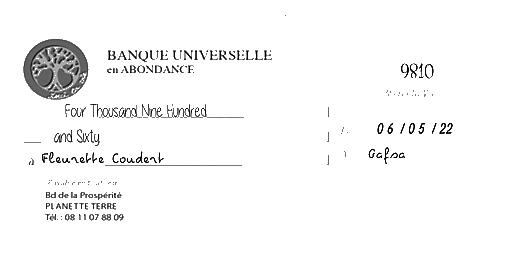 BANQUE UNIVERSELLE
en ABONDANCE
9810
Four Thousand Nine Hundred
and Sixty
06/05/22
à Fleurette Coudert
Gafsa
Bd de la Prospérité
PLANETTE TERRE
Tél. : 08 11 07 88 09